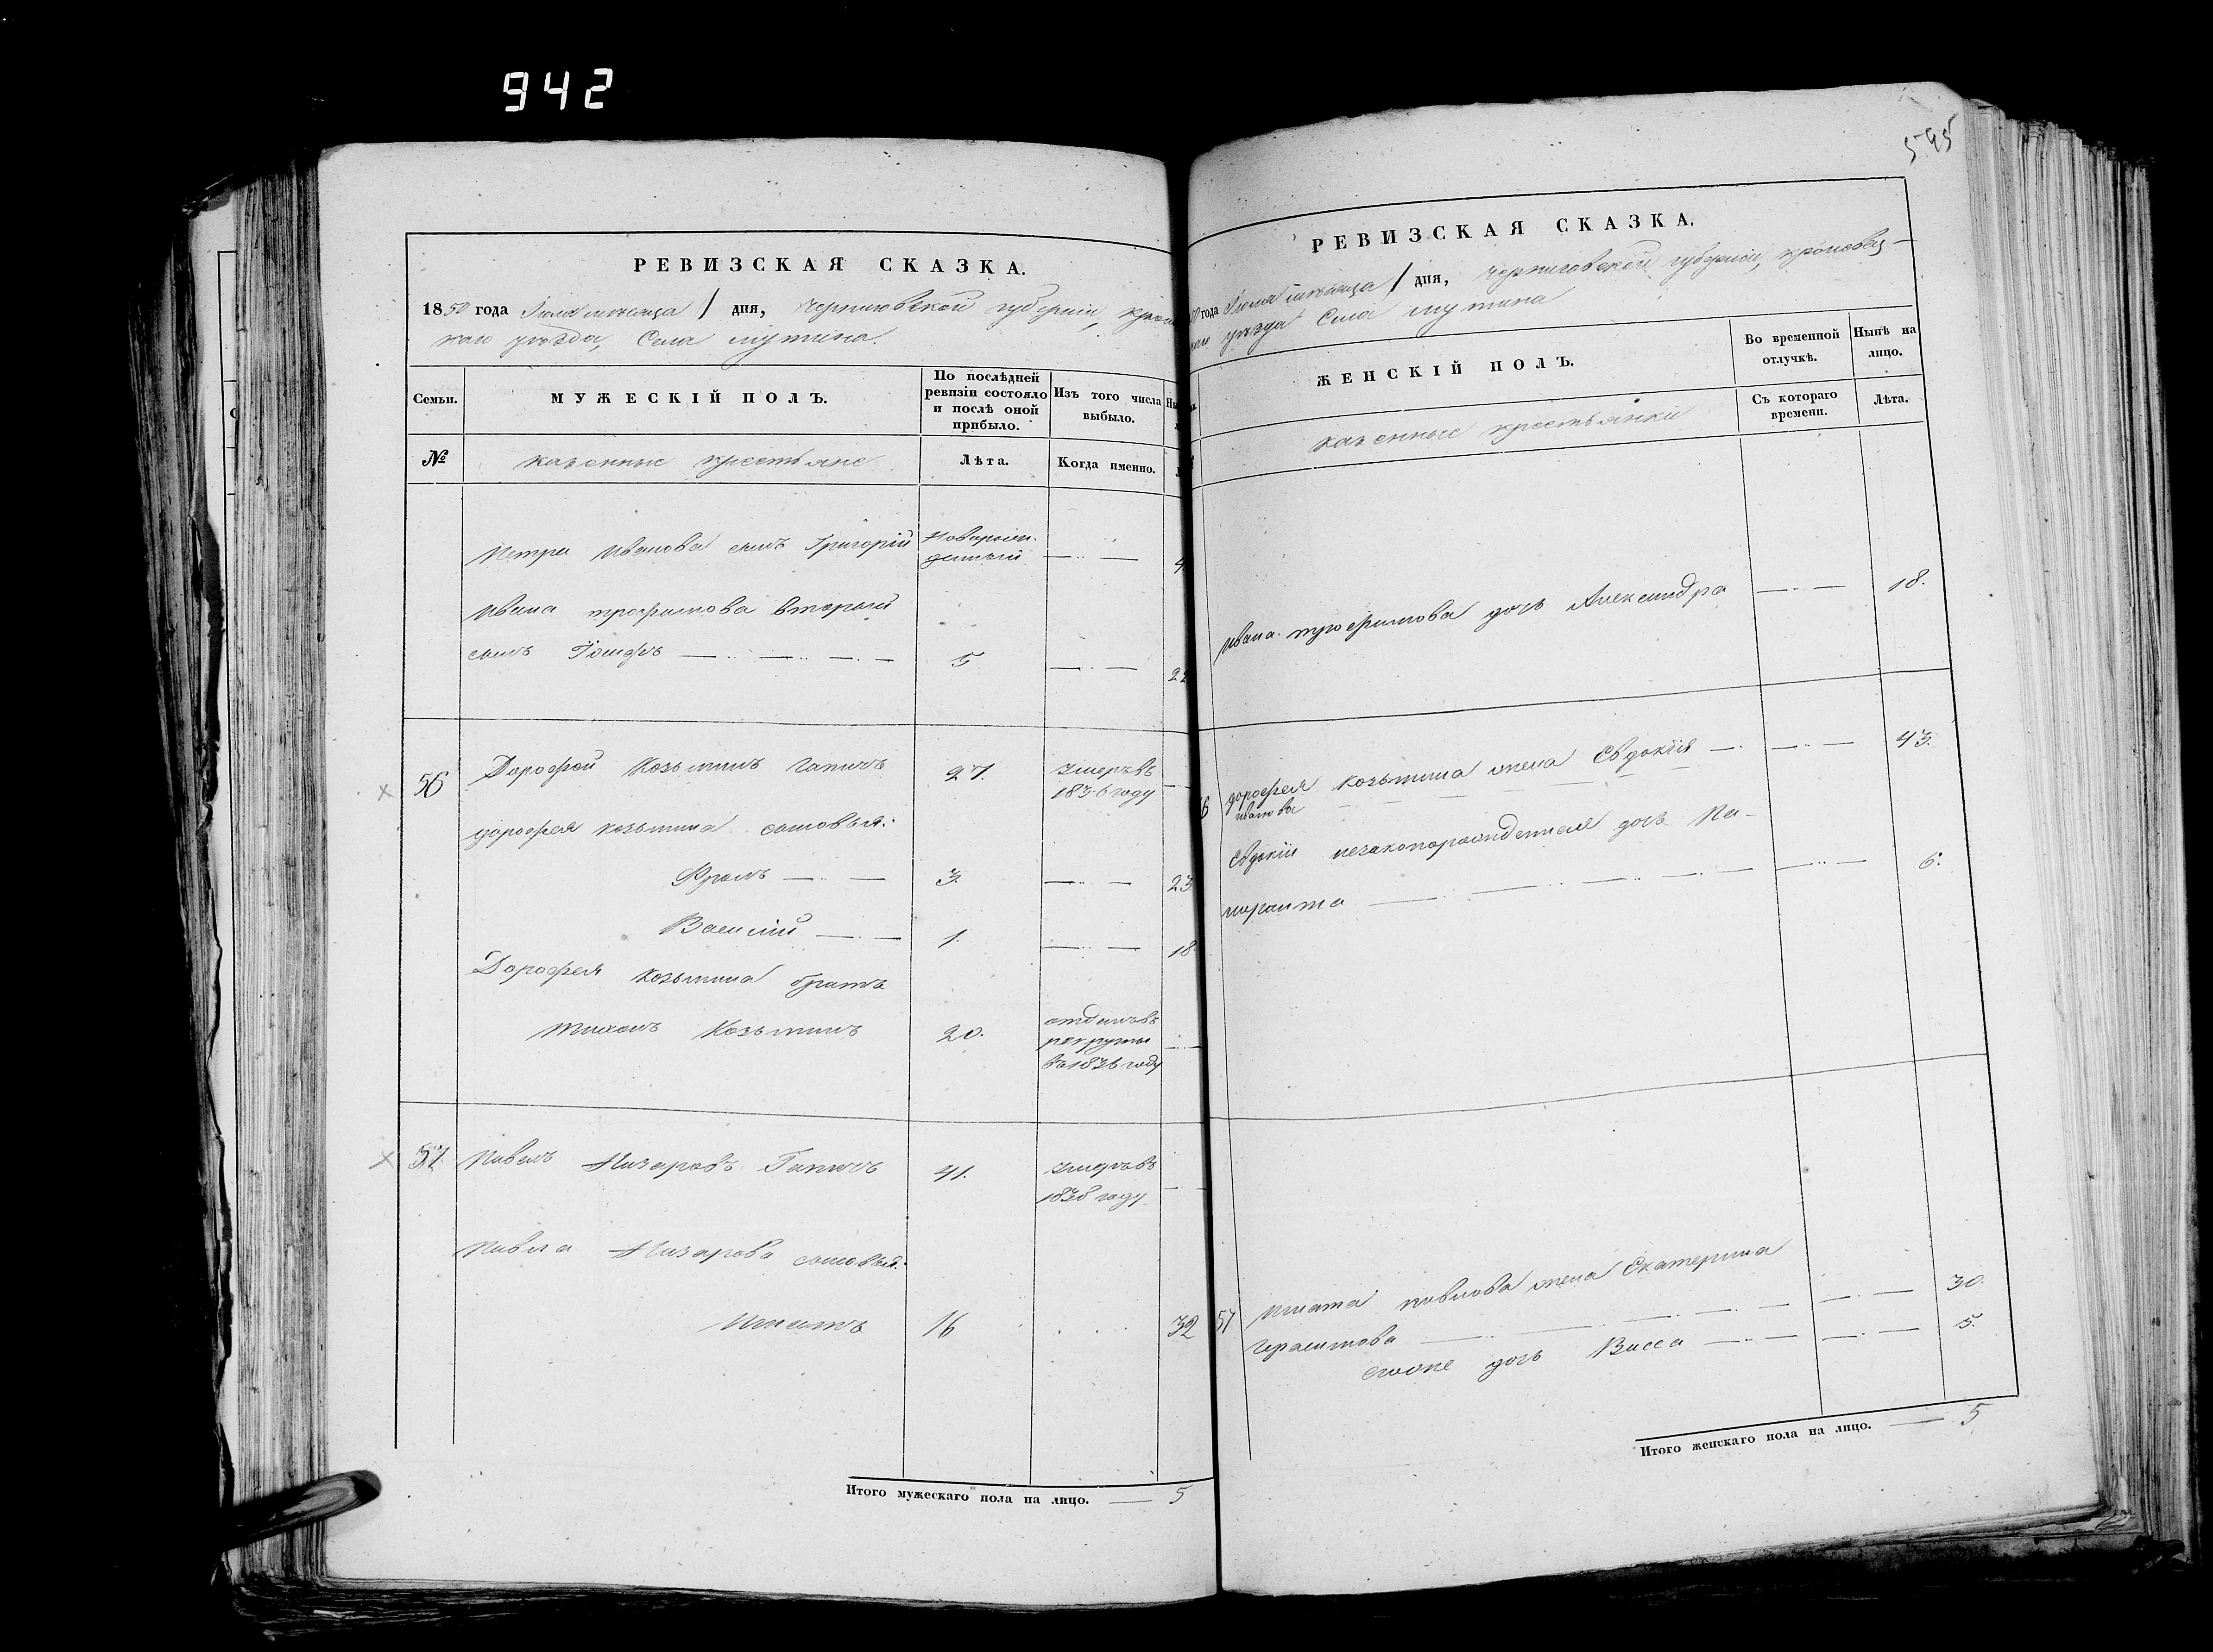 942
РЕВИЗСКАЯ СКАЗКА.
1850 года Іюля мѣсяца 1 дня, Черниговской губерніи,
уѣзда, Села Мутина.
Семьи.
МУЖЕСКІЙ ПОЛЪ.
По послѣдней
ревизіи состояло
и послѣ оной
прибыло.
Изъ того числа
выбыло.
№
казенные крестьяне
Лѣта.
Когда именно.
Петра Иванова сынъ Григорій
новорож-
денный
4
Ивана трофимова вторый
сынъ Іосифъ
5
22
56
Дорофей Козьминъ Гапичъ
27.
умеръ въ
1836 году
дорофея козьмина сыновья:
Фролъ
3.
23
Василій
1.
18.
Дорофея козьмина братъ
тихонъ Козьминъ
20.
отданъ въ
рекруты
году
57.
Павелъ Назаровъ Гапичъ
41.
умеръ въ
1838 году
Павла Назарова сыновья:
Игнатъ
16
32
Итого мужескаго пола на лицо.
5
545
РЕВИЗСКАЯ СКАЗКА.
года Іюля мѣсяца 1 дня, Черниговской губерніи, кролевец-
уѣзда Села мутина
ЖЕНСКІЙ ПОЛЪ.
Во временной
отлучкѣ.
Нынѣ на
лицо.
Съ котораго
времени.
Лѣта.
казенные крестьянки
Ивана трофимова дочь Александра
18.
дорофея козьмина жена Евдокія
43.
иванова
Евдокіи незаконорожденная дочь Ма-
6.
57
Игната павлова жена Екатерина
Герасимова
30.
егоже дочь Васса
5.
Итого женскаго пола на лицо.
5